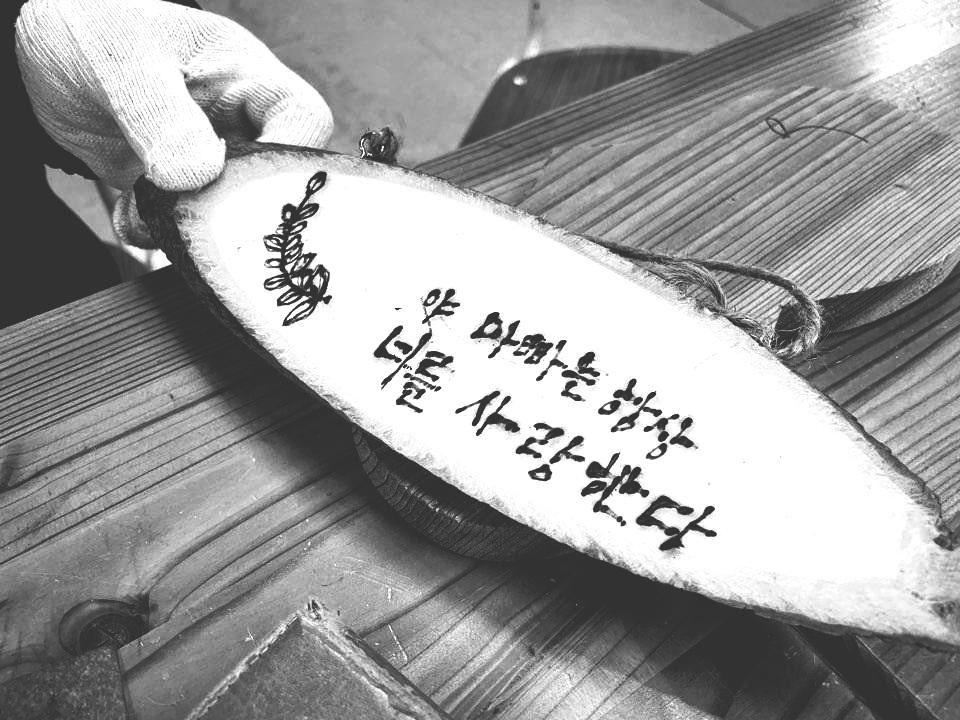 야 아빠는 항상
너를 사랑한다